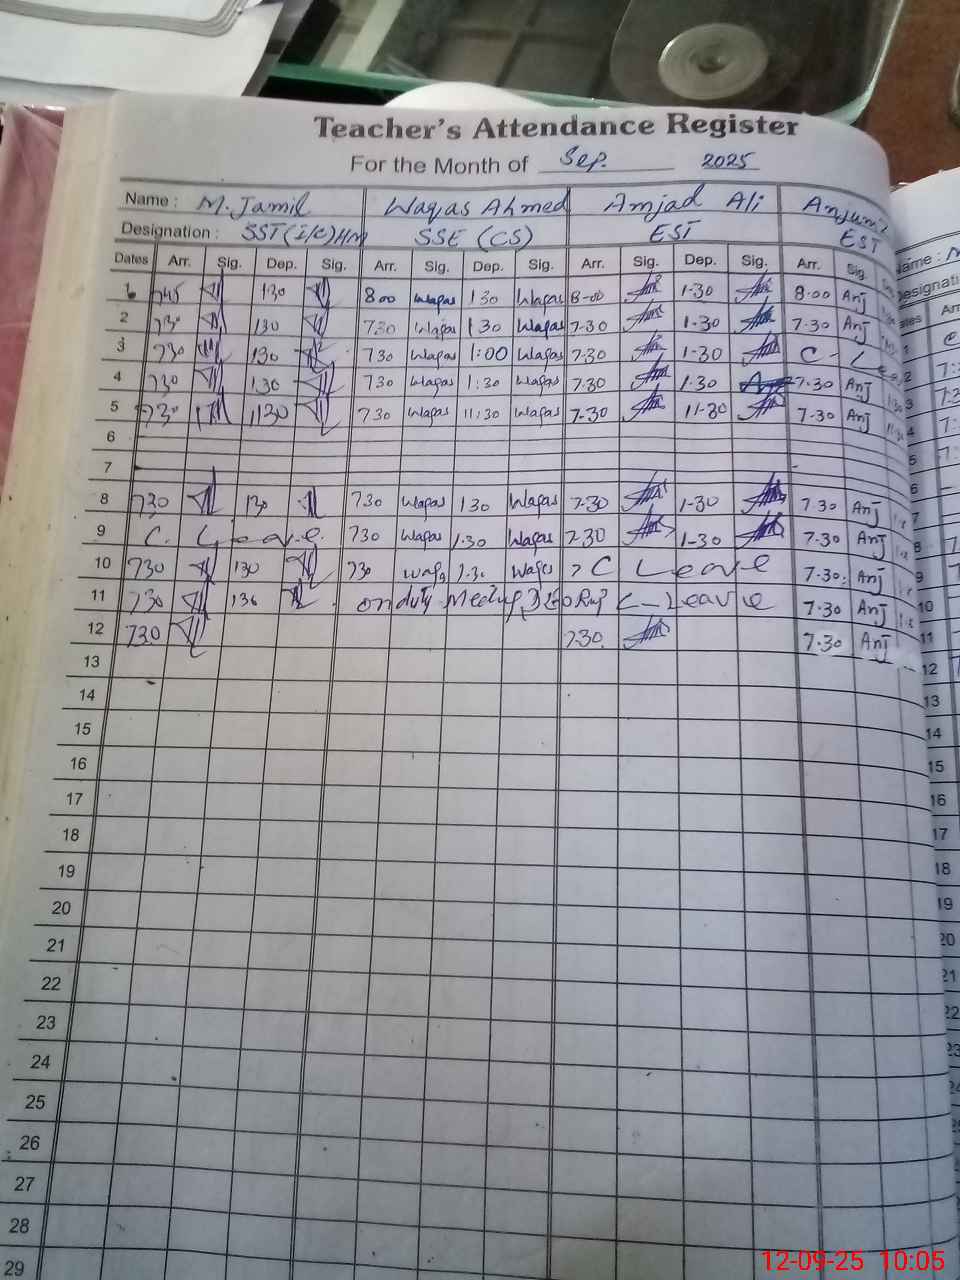 Teacher's Attendance Register
For the Month of Sep. 2025
Name : M. Jamil Waqas Ahmed Amjad Ali Anjum
Designation : SST (I/C) HM SSE (CS) EST EST
Dates Arr. Sig. Dep. Sig. Arr. Sig. Dep. Sig. Arr. Sig. Dep. Sig. Arr. Sig.
1 745 130 800 Waqas 130 Waqas 8-00 1-30 8.00 Anj
2 730 130 730 Waqas 130 Waqas 7-30 1-30 7.30 Anj
3 730 130 730 Waqas 1:00 Waqas 7-30 1-30 C - Leave
4 730 130 730 Waqas 1:30 Waqas 7-30 1-30 7.30 Anj
5 730 1130 730 Waqas 11:30 Waqas 7-30 11-30 7.30 Anj
6
7
8 730 130 730 Waqas 130 Waqas 7-30 1-30 7.30 Anj
9 C. Leave. 730 Waqas 1.30 Waqas 7-30 1-30 7.30 Anj
10 730 130 730 Waqas 1.30 Waqas C Leave 7.30 Anj
11 730 130 on duty C-Leave 7.30 Anj
12 730 7.30 7.30 Anj
13
14
15
16
17
18
19
20
21
22
23
24
25
26
27
28
29
12-09-25 10:05